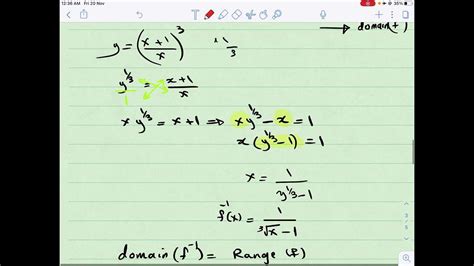 12:36 AM Fri 20 Nov
35%
→ domain(f)
y = (x+1/x)^3
1/3
y^1/3/1 = x+1/x
x y^1/3 = x+1 ⇒ xy^1/3 - x = 1
x (y^1/3 - 1) = 1
x = 1/y^1/3 - 1
f^-1(x) = 1/∛x - 1
domain (f^-1) = Range (f)